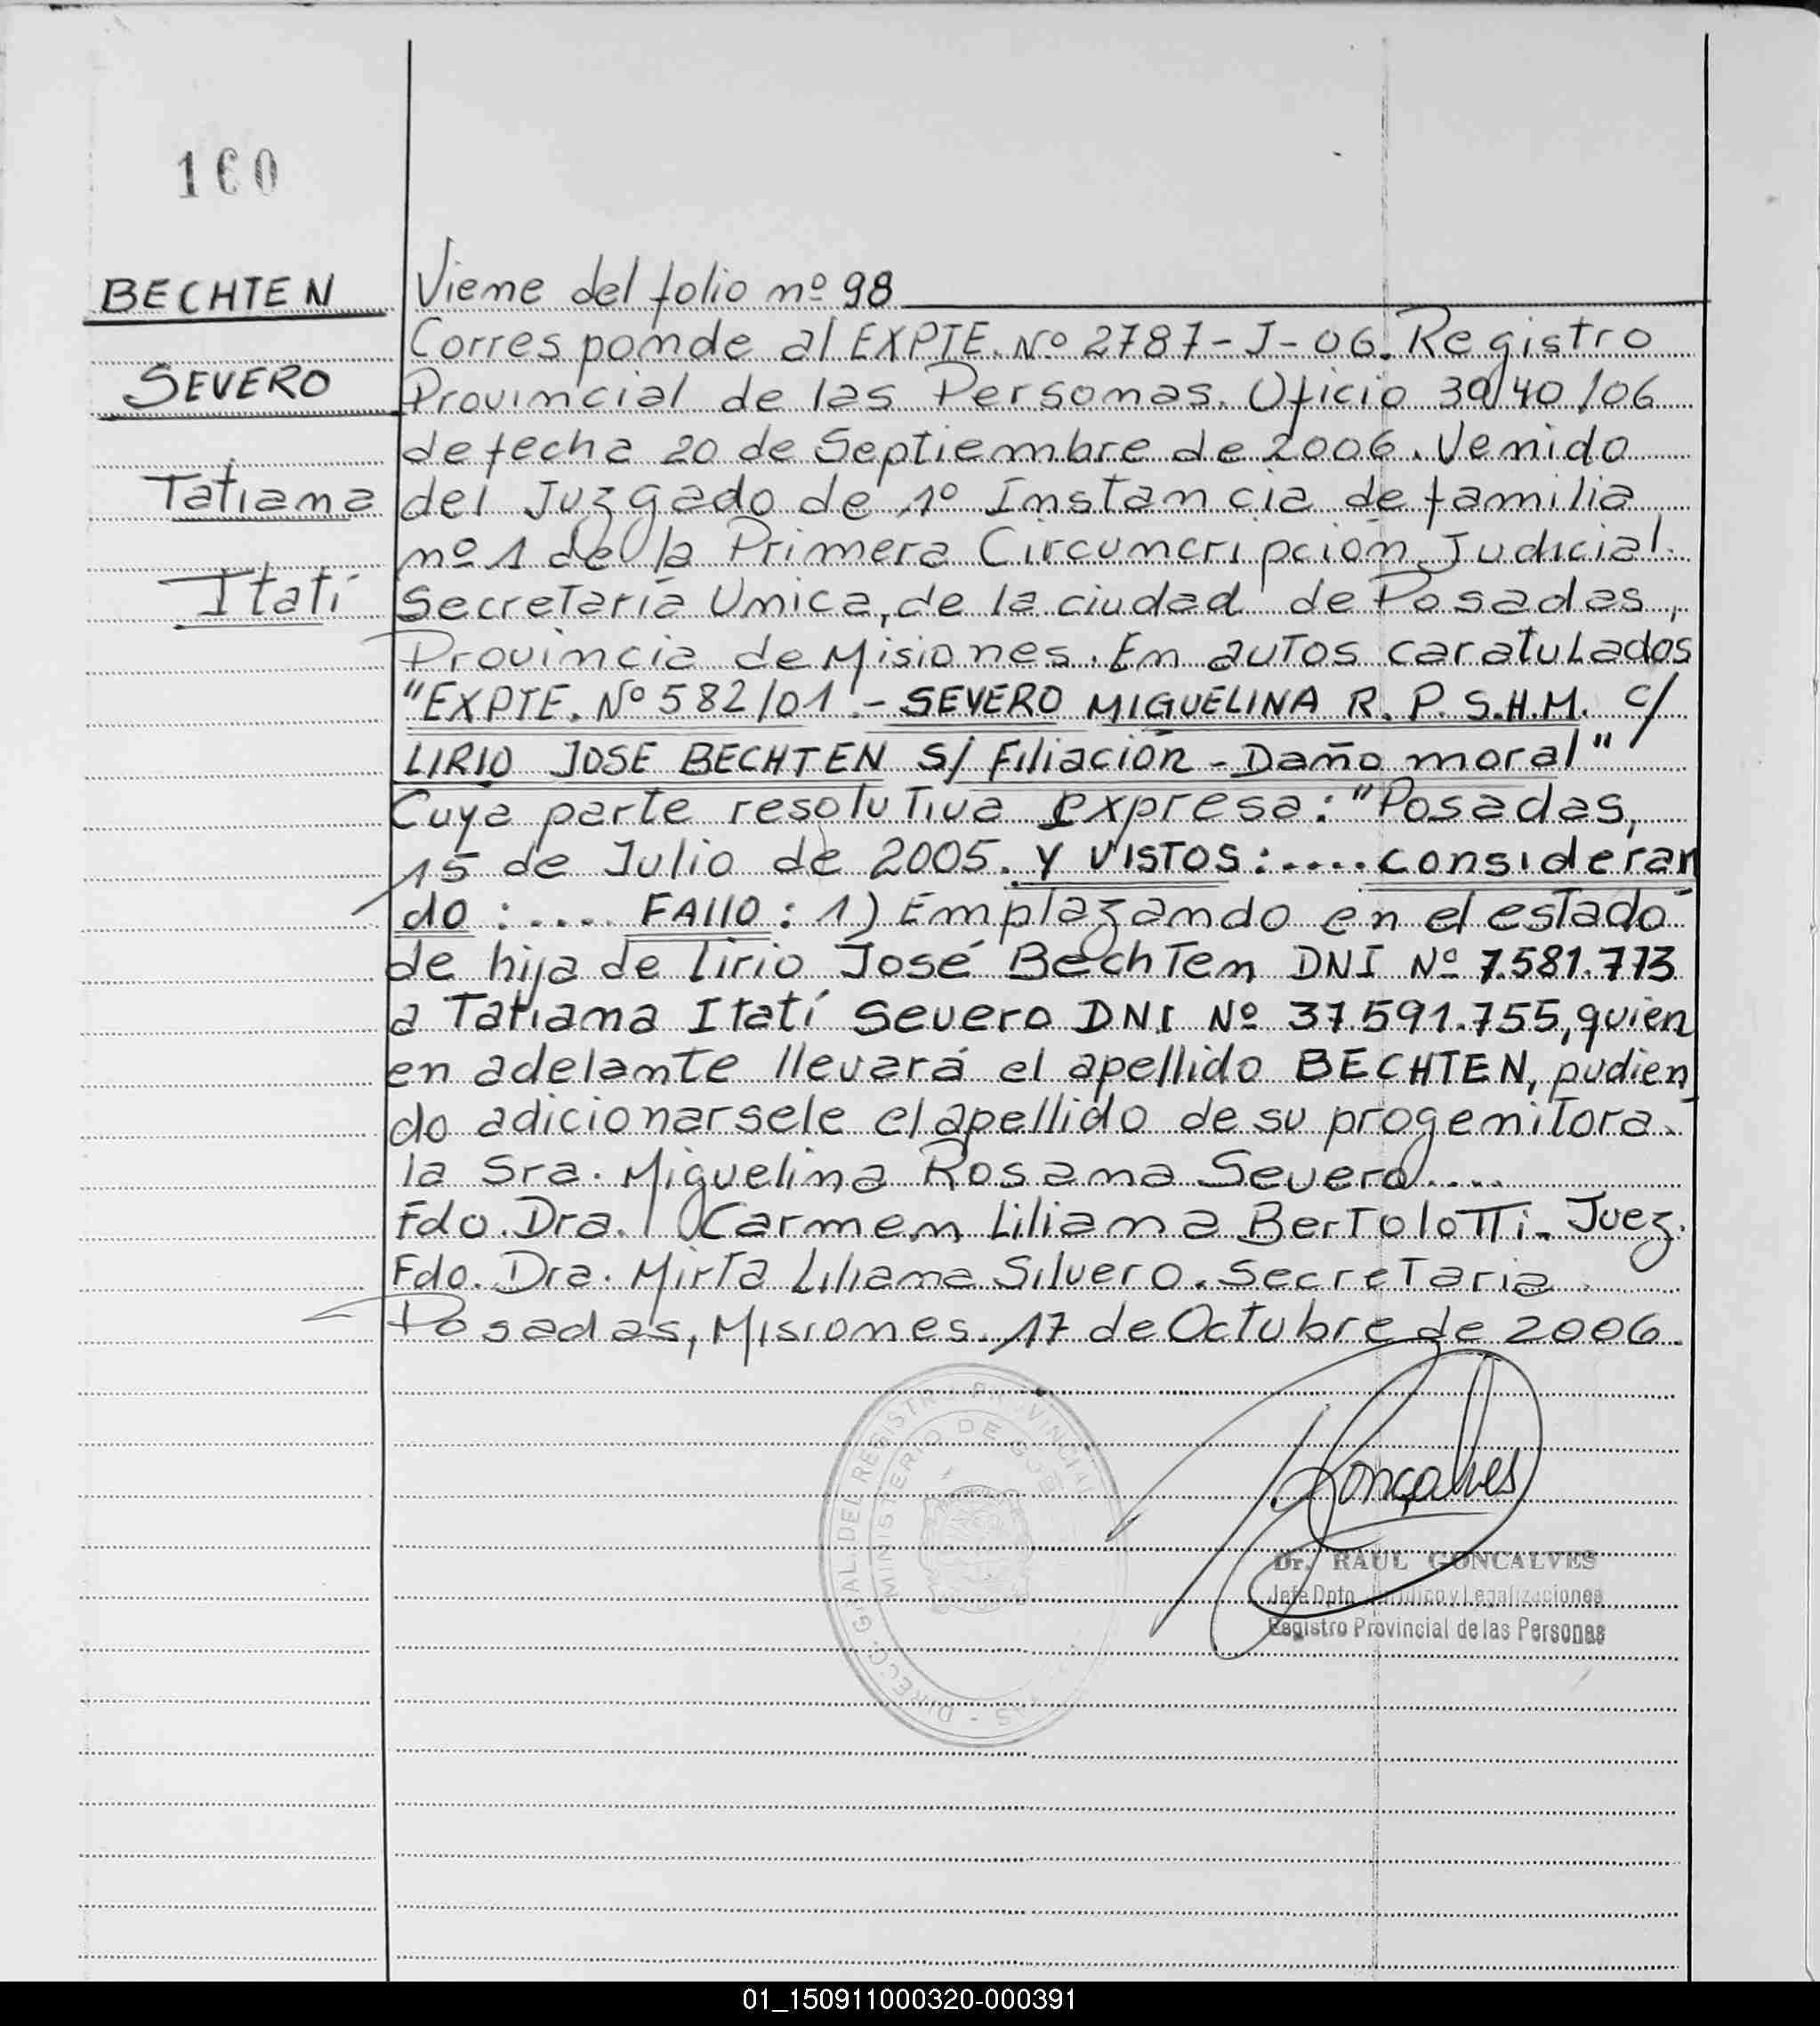 160
BECHTEN
SEVERO
Tatiana
Itatí
Viene del folio nº 98
Corresponde al EXPTE. Nº 2787-J-06. Registro
Provincial de las Personas. Oficio 3940/06
de fecha 20 de Septiembre de 2006. Venido
del Juzgado de 1º Instancia de familia
nº 1 de la Primera Circuncripción Judicial.
Secretaría Unica, de la ciudad de Posadas,
Provincia de Misiones. En autos caratulados
"EXPTE. Nº 582/01.- SEVERO MIGUELINA R. P. S.H.M. c/
LIRIO JOSE BECHTEN S/ Filiación - Daño moral"
Cuya parte resolutiva expresa: "Posadas,
15 de Julio de 2005. Y VISTOS:.... consideran
do:.... FAllO: 1) Emplazando en el estado
de hija de lirio José Bechten DNI Nº 7.581.773
a Tatiana Itatí Severo DNI Nº 37.591.755, quien
en adelante llevará el apellido BECHTEN, pudien
do adicionarsele el apellido de su progenitora.
la Sra. Miguelina Rosana Severo....
Fdo. Dra. Carmen Liliana Bertolotti- Juez.
Fdo. Dra. Mirta Liliana Silvero. Secretaria
Posadas, Misiones. 17 de Octubre de 2006.
DIRECC. GRAL. DEL REGISTRO PROVINCIAL
MINISTERIO DE
Gonçalves
Dr. RAUL GONCALVES
Jefe Dpto. Jurídico y Legalizaciones
Registro Provincial de las Personas
01_150911000320-000391